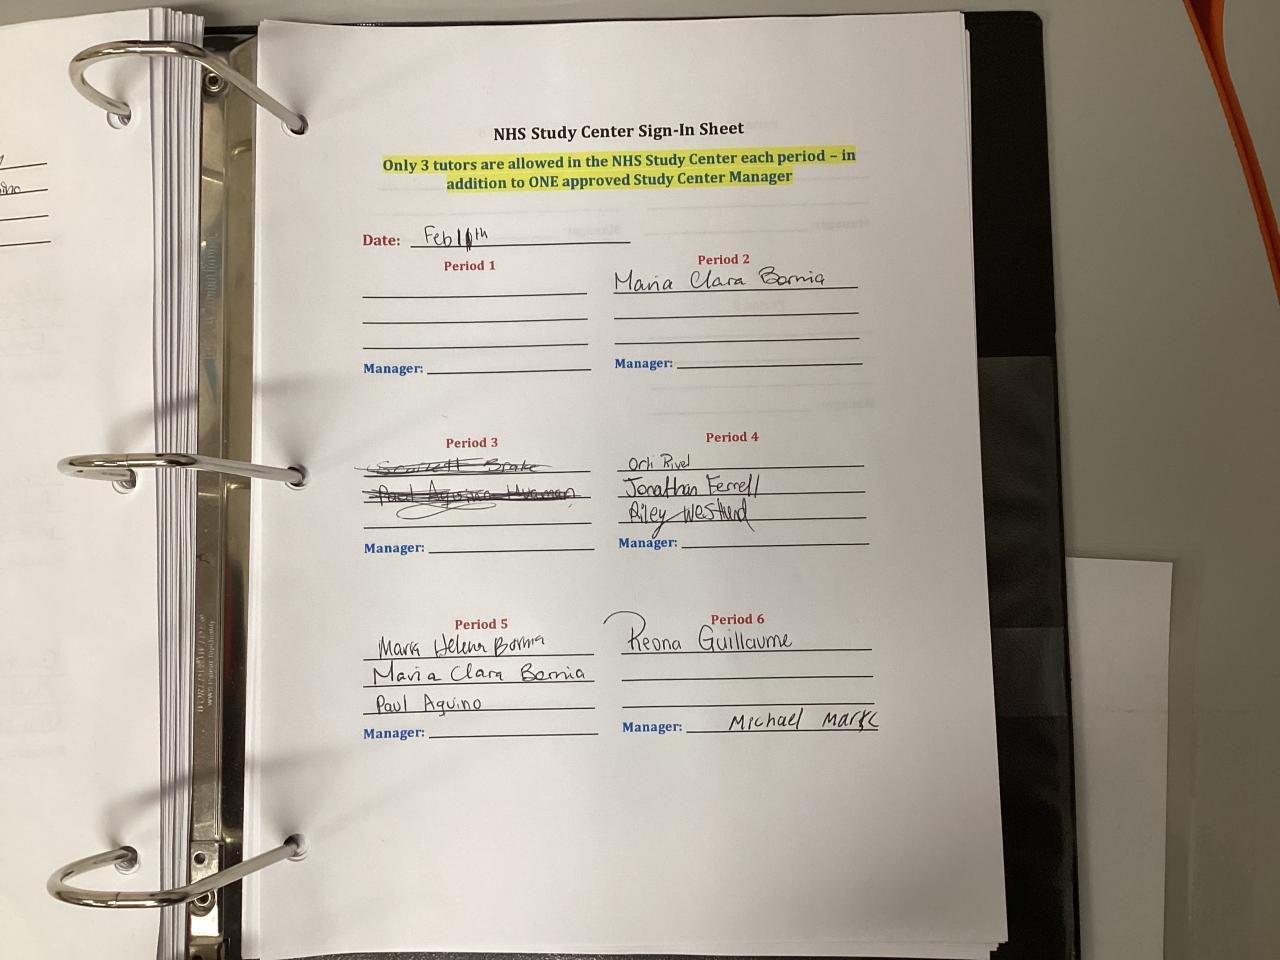 NHS Study Center Sign-In Sheet
Only 3 tutors are allowed in the NHS Study Center each period – in
addition to ONE approved Study Center Manager
Date: Feb 11th
Period 1
Manager:
Period 2
Maria Clara Bornia
Manager:
Period 3
Scarlett Brake
Paul Aquino
Manager:
Period 4
Orli Rivel
Jonathan Ferrell
Riley Westlund
Manager:
Period 5
Maria Helena Bornia
Maria Clara Bornia
Paul Aquino
Manager:
Period 6
Reona Guillaume
Manager: Michael Marks